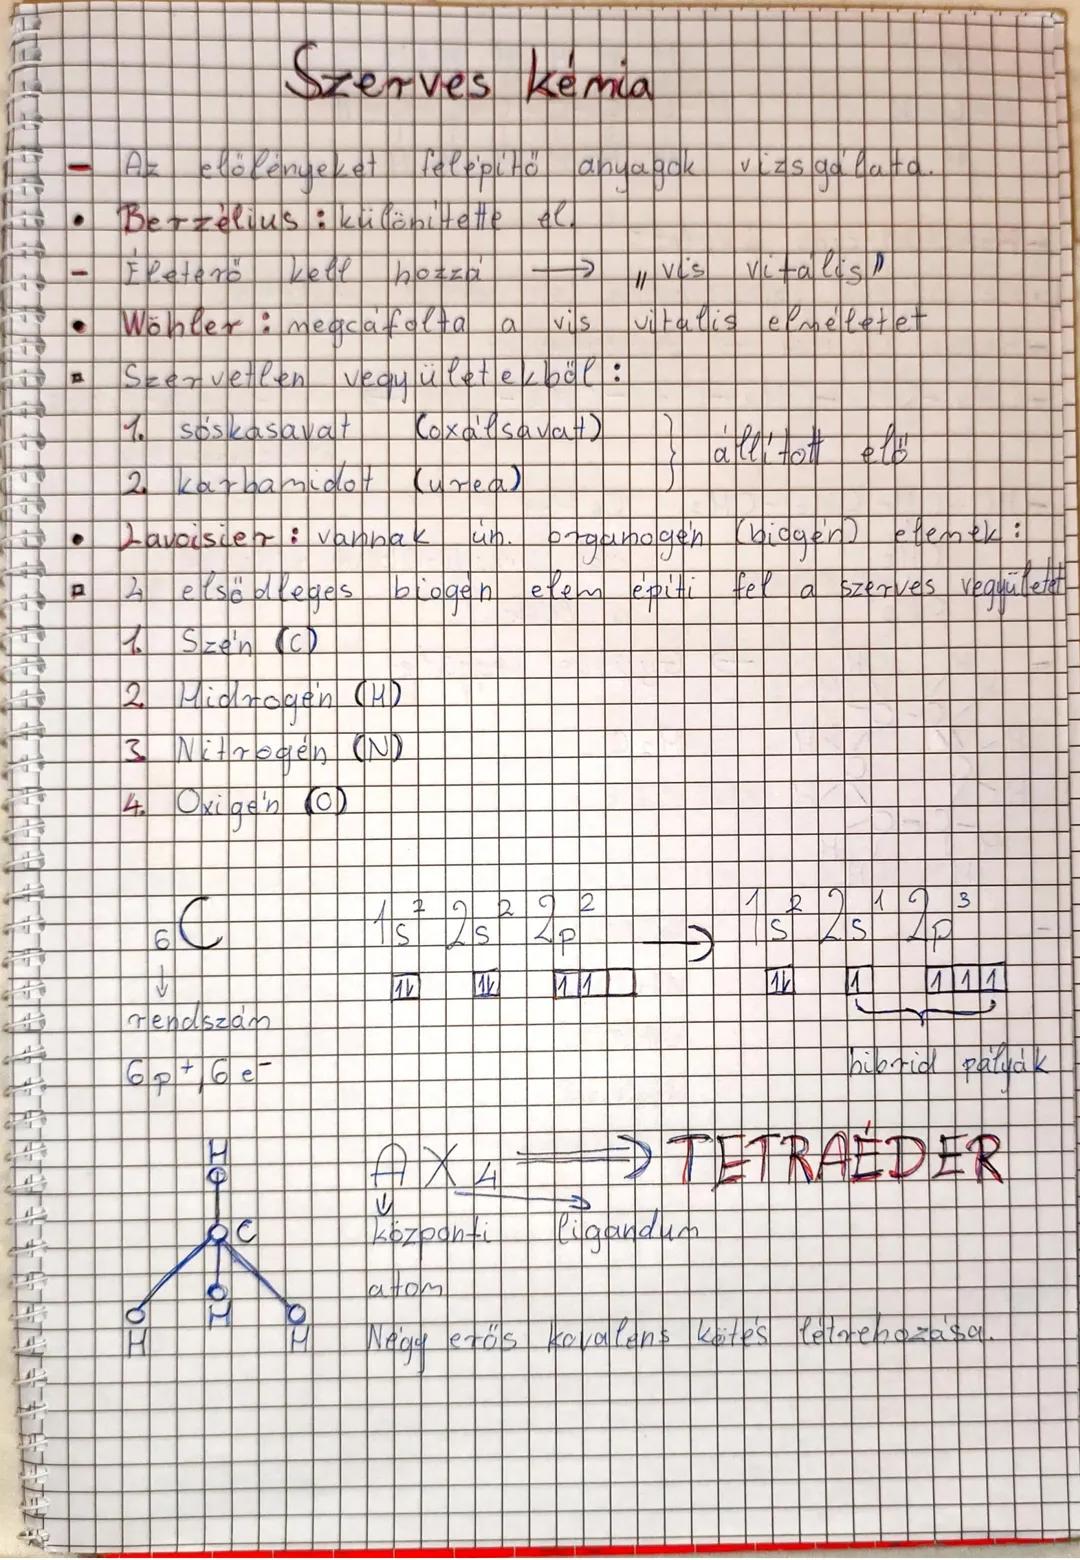 Szerves kémia
- Az élőlényeket felépítő anyagok vizsgálata.
• Berzélius : különítette el.
- Életerő kell hozzá → „vis vitális”
• Wöhler : megcáfolta a vis vitális elméletet
▫ Szervetlen vegyületekből :
1. sóskasavat (oxálsavat) } állított elő
2. karbamidot (urea)
• Lavoisier : vannak ún. organogén (biogén) elemek :
▫ 4 elsődleges biogén elem építi fel a szerves vegyületet
1. Szén (C)
2. Hidrogén (H)
3. Nitrogén (N)
4. Oxigén (O)
₆C 1s² 2s² 2p² → 1s² 2s¹ 2p³
↓
rendszám
6p⁺, 6e⁻ hibrid pályák
H
AX₄ ⇒ TETRAÉDER
C központi ligandum
atom
H H H
Négy erős kovalens kötés létrehozása.